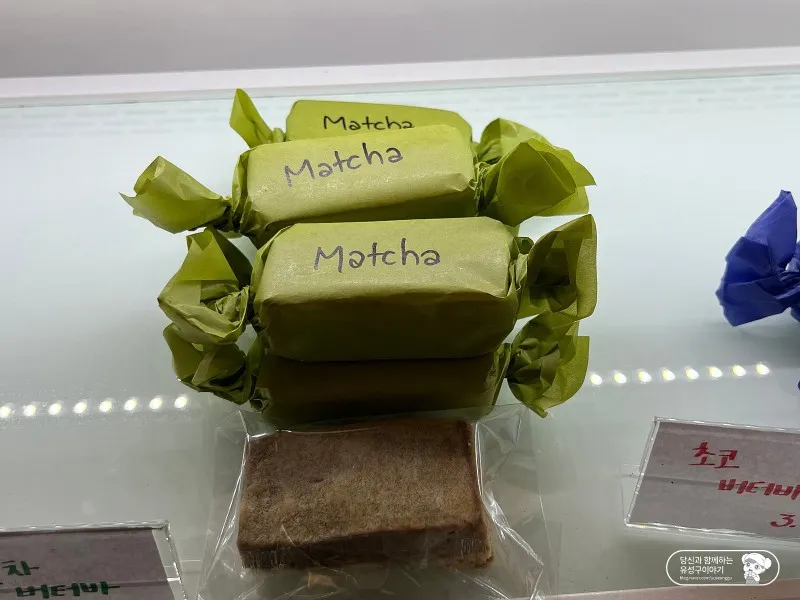 Matcha
Matcha
Matcha
초코
버터바
3.
차
버터바
당신과 함께하는
유성구이야기